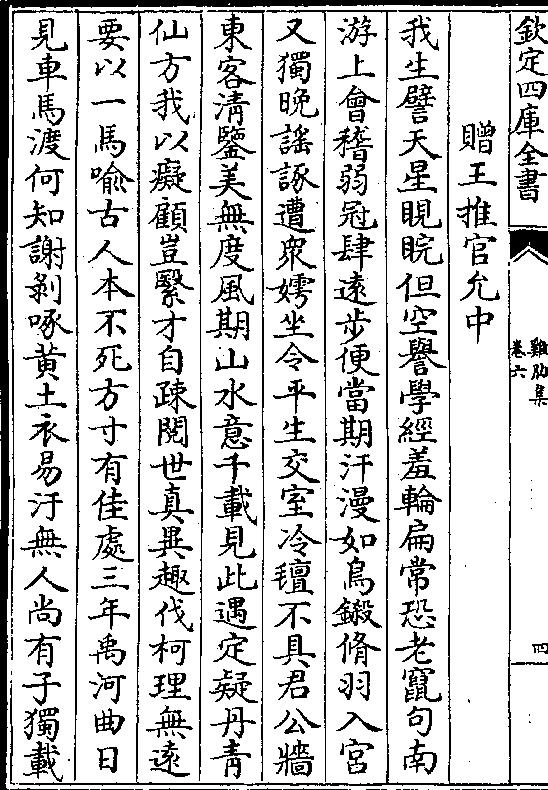 欽定四庫全書
雞肋集
卷六
四
贈王推官允中
我生譬天星睍睆但空譽學經羞輪扁常恐老竄句南
游上會稽弱冠肆遠步便當期汗漫如鳥鎩脩羽入宮
又獨晚謡諑遭衆嫮坐令平生交室冷氊不具君公牆
東客清鑒美無度風期山水意千載見此遇定疑丹青
仙方我以癡顧豈繄才自疎閱世真異趣伐柯理無遠
要以一馬喻古人本不死方寸有佳處三年禹河曲日
見車馬渡何知謝剝啄黄土衣易汙無人尚有子獨載